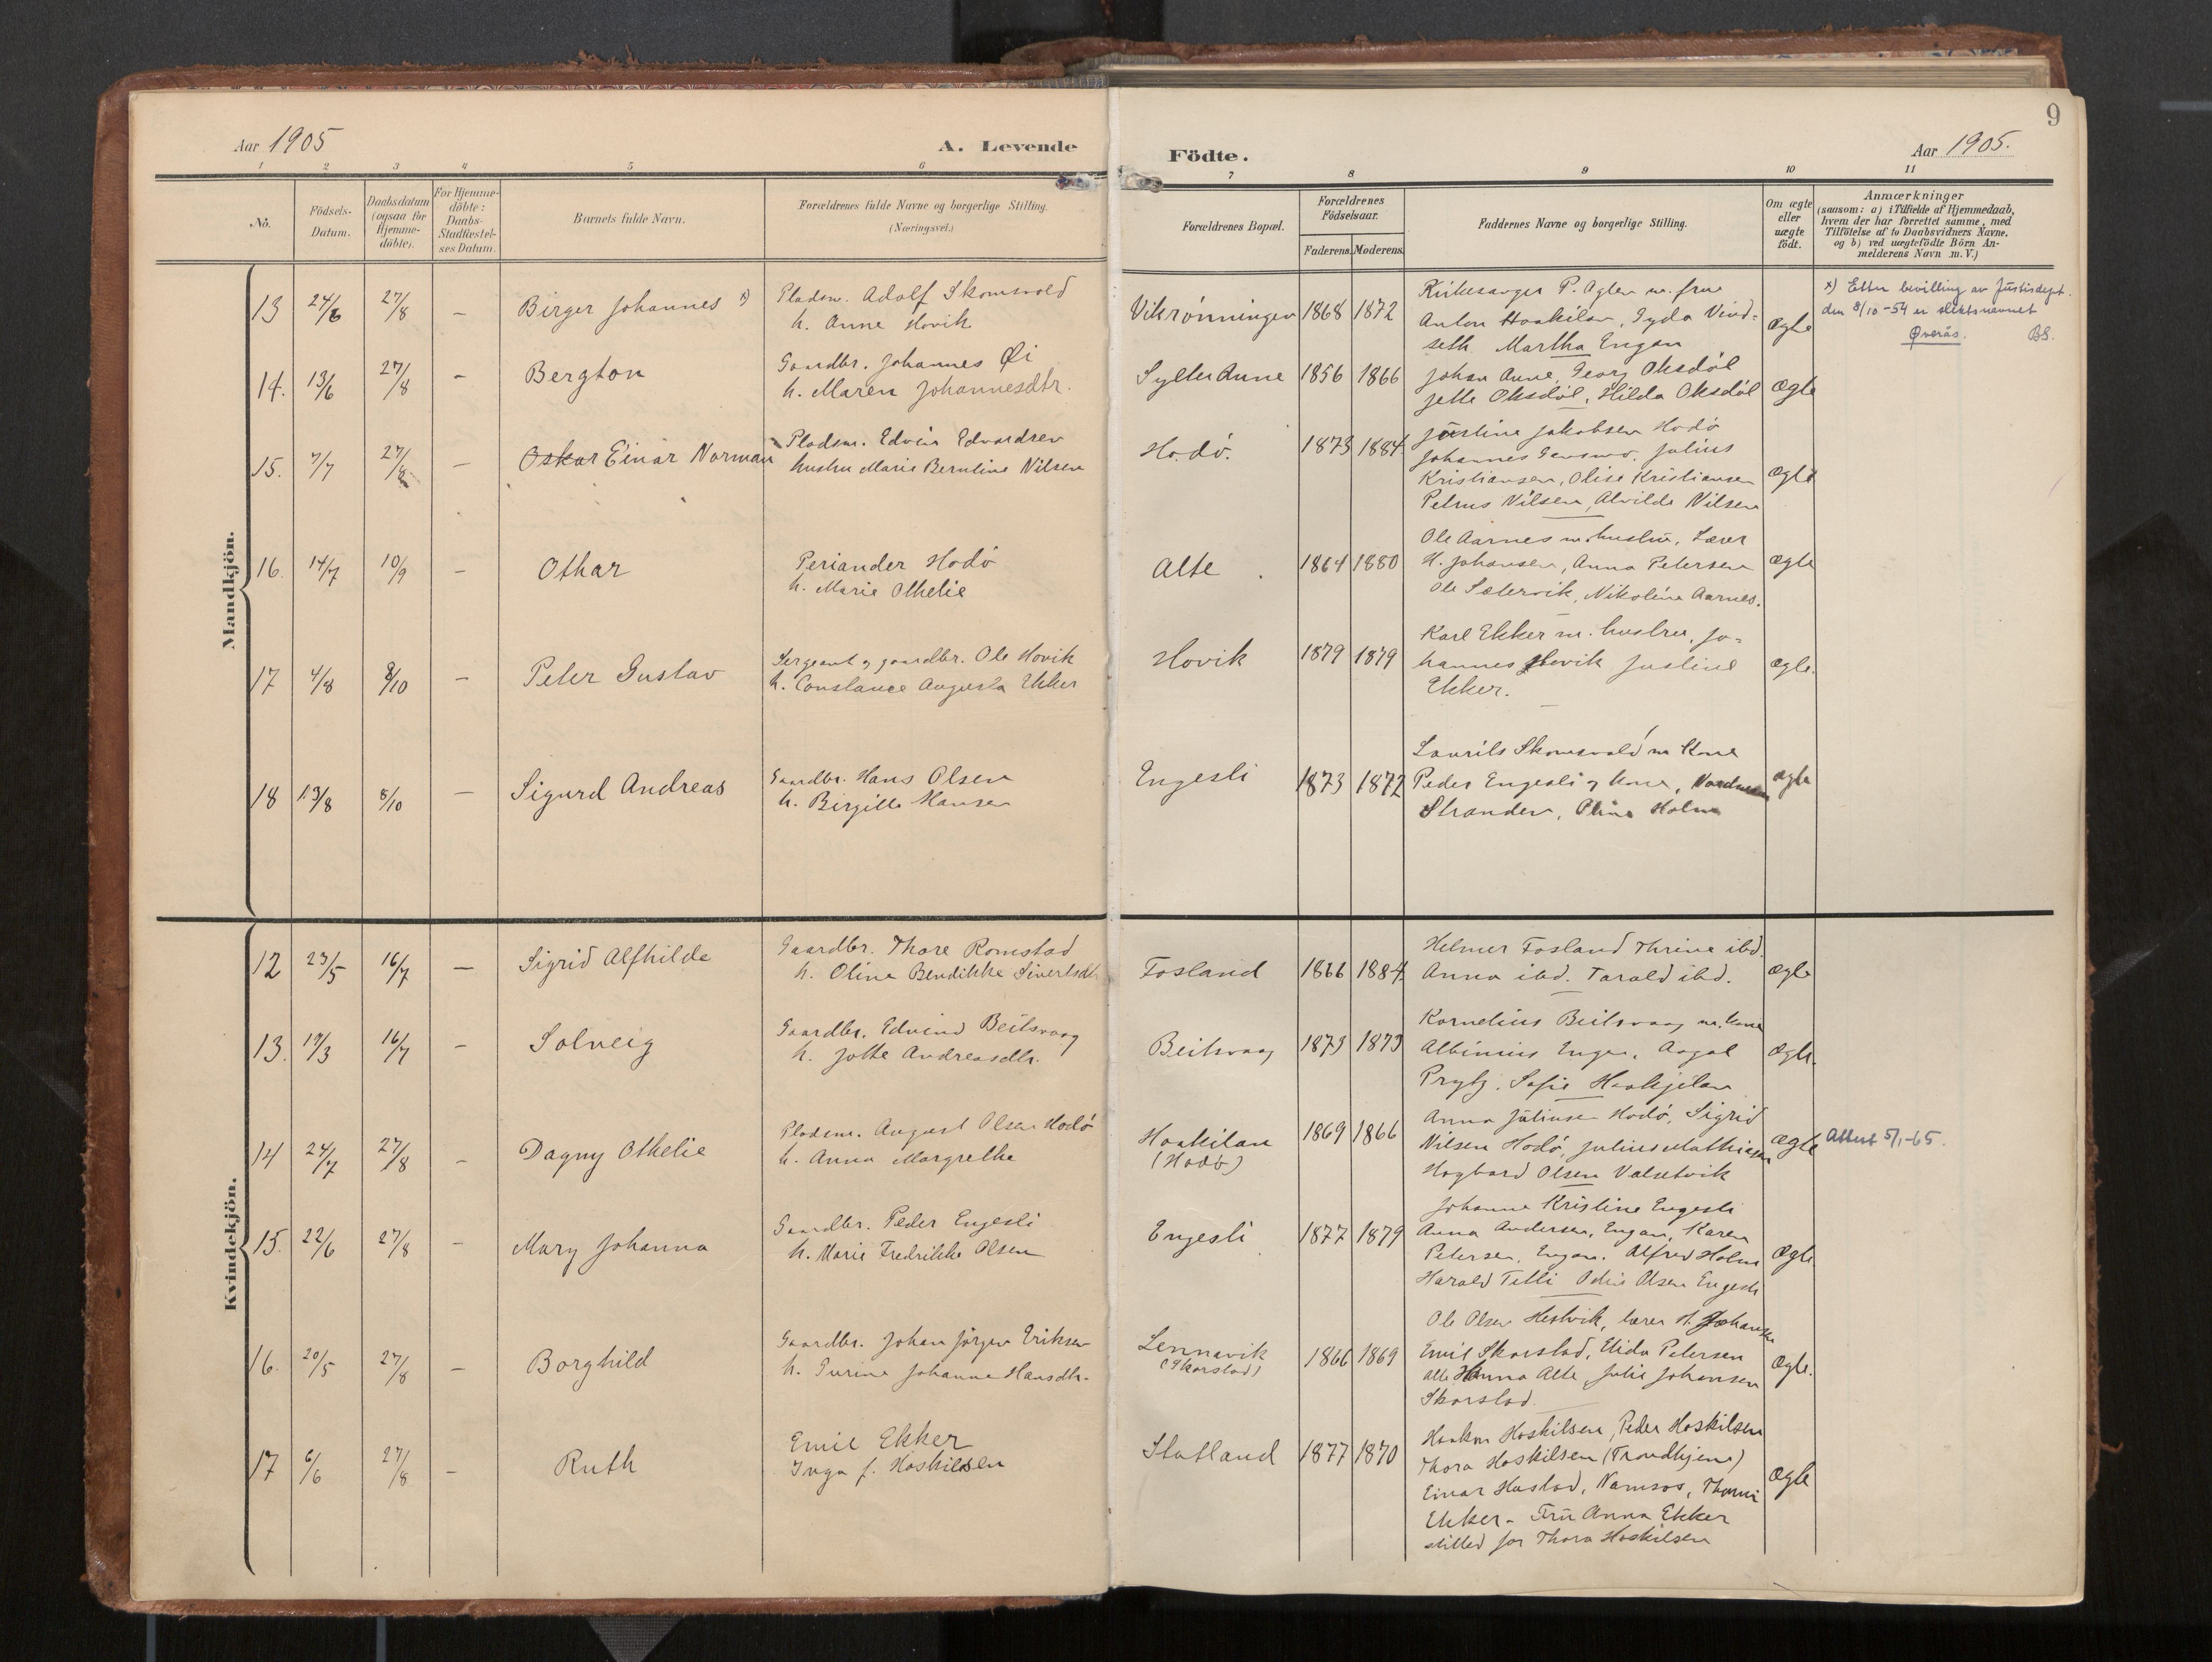 9
Aar 1905
A. Levende
Födte.
Aar 1905.
1 2 3 4 5 6 7 8 9 10 11
No.
Födsels-
Datum.
Daabsdatum
(ogsaa for
Hjemme-
döbte).
For Hjemme-
döbte:
Daabs-
Stadfæstel-
ses Datum.
Barnets fulde Navn.
Forældrenes fulde Navne og borgerlige Stilling.
(Næringsvei.)
Forældrenes Bopæl.
Forældrenes
Födselsaar.
Faderens. Moderens.
Faddernes Navne og borgerlige Stilling.
Om ægte
eller
uægte
födt.
Anmærkninger
(saasom: a) i Tilfælde af Hjemmedaab,
hvem der har forrettet samme, med
Tilföielse af to Daabsvidners Navne.
og b) ved uægtefödte Börn An-
melderens Navn m. V.)
Mandkjön.
13 24/6 27/8 Birger Johannes x)
Pladsm. Adolf Skomsvold
h. Anne Hovik
Vikrønningen 1868 1872
Kirkesanger P. Aglen m. frue
Anton Haakilan, Gyda Vind-
seth Martha Engan
Ægte
x) Etter bevilling av Justisdept.
den 8/10-54 er slektsnavnet
Øverås. BS.
14. 13/6 27/8 - Bergton
Gaardbr. Johannes Øi
h. Maren Johannesdtr.
Sylten Aune 1856 1866
Johan Aune, Georg Oksdøl
Jette Oksdøl, Hilda Oksdøl
Ægte
15. 7/7 27/8 - Oskar Einar Norman
Pladsm. Edvin Edvardsen
hustru Marie Berntine Nilsen
Hodö. 1873 1884
Justine Jakobsen Hodö
Johannes Julius
Kristiansen, Olise Kristiansen
Petrus Nilsen, Alvilde Nilsen
Ægte
16. 14/7 10/9 - Othar
Periander Hodö
h. Marie Othelie
Alte 1864 1880
Ole Aarnes m. hustru, Lærer
H. Johansen, Anna Petersen
Ole Sætervik, Nikoline Aarnes.
Ægte
17 4/8 8/10 - Peter Gustav
Sergeant og gaardbr. Ole Hovik
h. Constance Augusta Ekker
Hovik 1879 1879
Karl Ekker m. hustru, Jo-
hannes Hovik Justine
Ekker.
Ægte.
18 13/8 8/10 - Sigurd Andreas
Gaardbr. Hans Olsen
h. Birgitte Hansen
Engesli 1873 1872
Laurits Skomsvold m Kone
Peder Engesli og Kone,
Stranden, Oline Holm
Ægte
Kvindekjön.
12 23/5 16/7 - Sigrid Alfhilde
Gaardbr. Thore Romstad
h. Oline Bendikke Sivertsdtr
Fosland 1866 1884
Helmer Fosland Thrine ibd.
Anna ibd. Tarald ibd.
Ægte
13. 19/3 16/7 - Solveig
Gaardbr. Edvind Beitsvaag
h. Jotte Andreasdtr.
Beitsvaag 1873 1873
Kornelius Beitsvaag m. Kone
Albinius Engan, Aagot
Prytz, Sofie Haakjelan
Ægte.
14 24/7 27/8 - Dagny Othelie
Pladsm. August Olsen Hodö
h. Anna Margrethe
Haakilan
(Hodö)
1869 1866
Anna Juliusen Hodö, Sigrid
Nilsen Hodö, Julius Mathiasen
Hagbard Olsen Valsetvik
Ægte
Attest 5/1-65.
15. 22/6 27/8 - Mary Johanna
Gaardbr. Peder Engesli
h. Marie Fredrikke Olsen
Engesli 1877 1879
Johanna Kristine Engesli
Anna Andersen, Engan, Karen
Petersen, Engan. Alfred Holm
Harald Tetli Olsen Engesli
Ægte.
16. 20/5 27/8 - Borghild
Gaardbr. Johan Jörgen Eriksen
h. Purine Johanna Hansdtr.
Lennavik
(Skorstad)
1866 1869
Ole Olsen Hestvik, lærer H. Johansen
Emil Skorstad, Elida Petersen
Alte Hanna Alte, Julie Johansen
Skorstad.
Ægte.
17 6/6 27/8 - Ruth
Emil Ekker
Inga f. Haskilsen
Statland 1877 1870
Haakon Haskilsen, Peder Haskilsen
Thora Haskilsen (Trondhjem)
Einar Hustad, Namsos,
Ekker - Fru Anna Ekker
stilled for Thora Haskilsen
Ægte